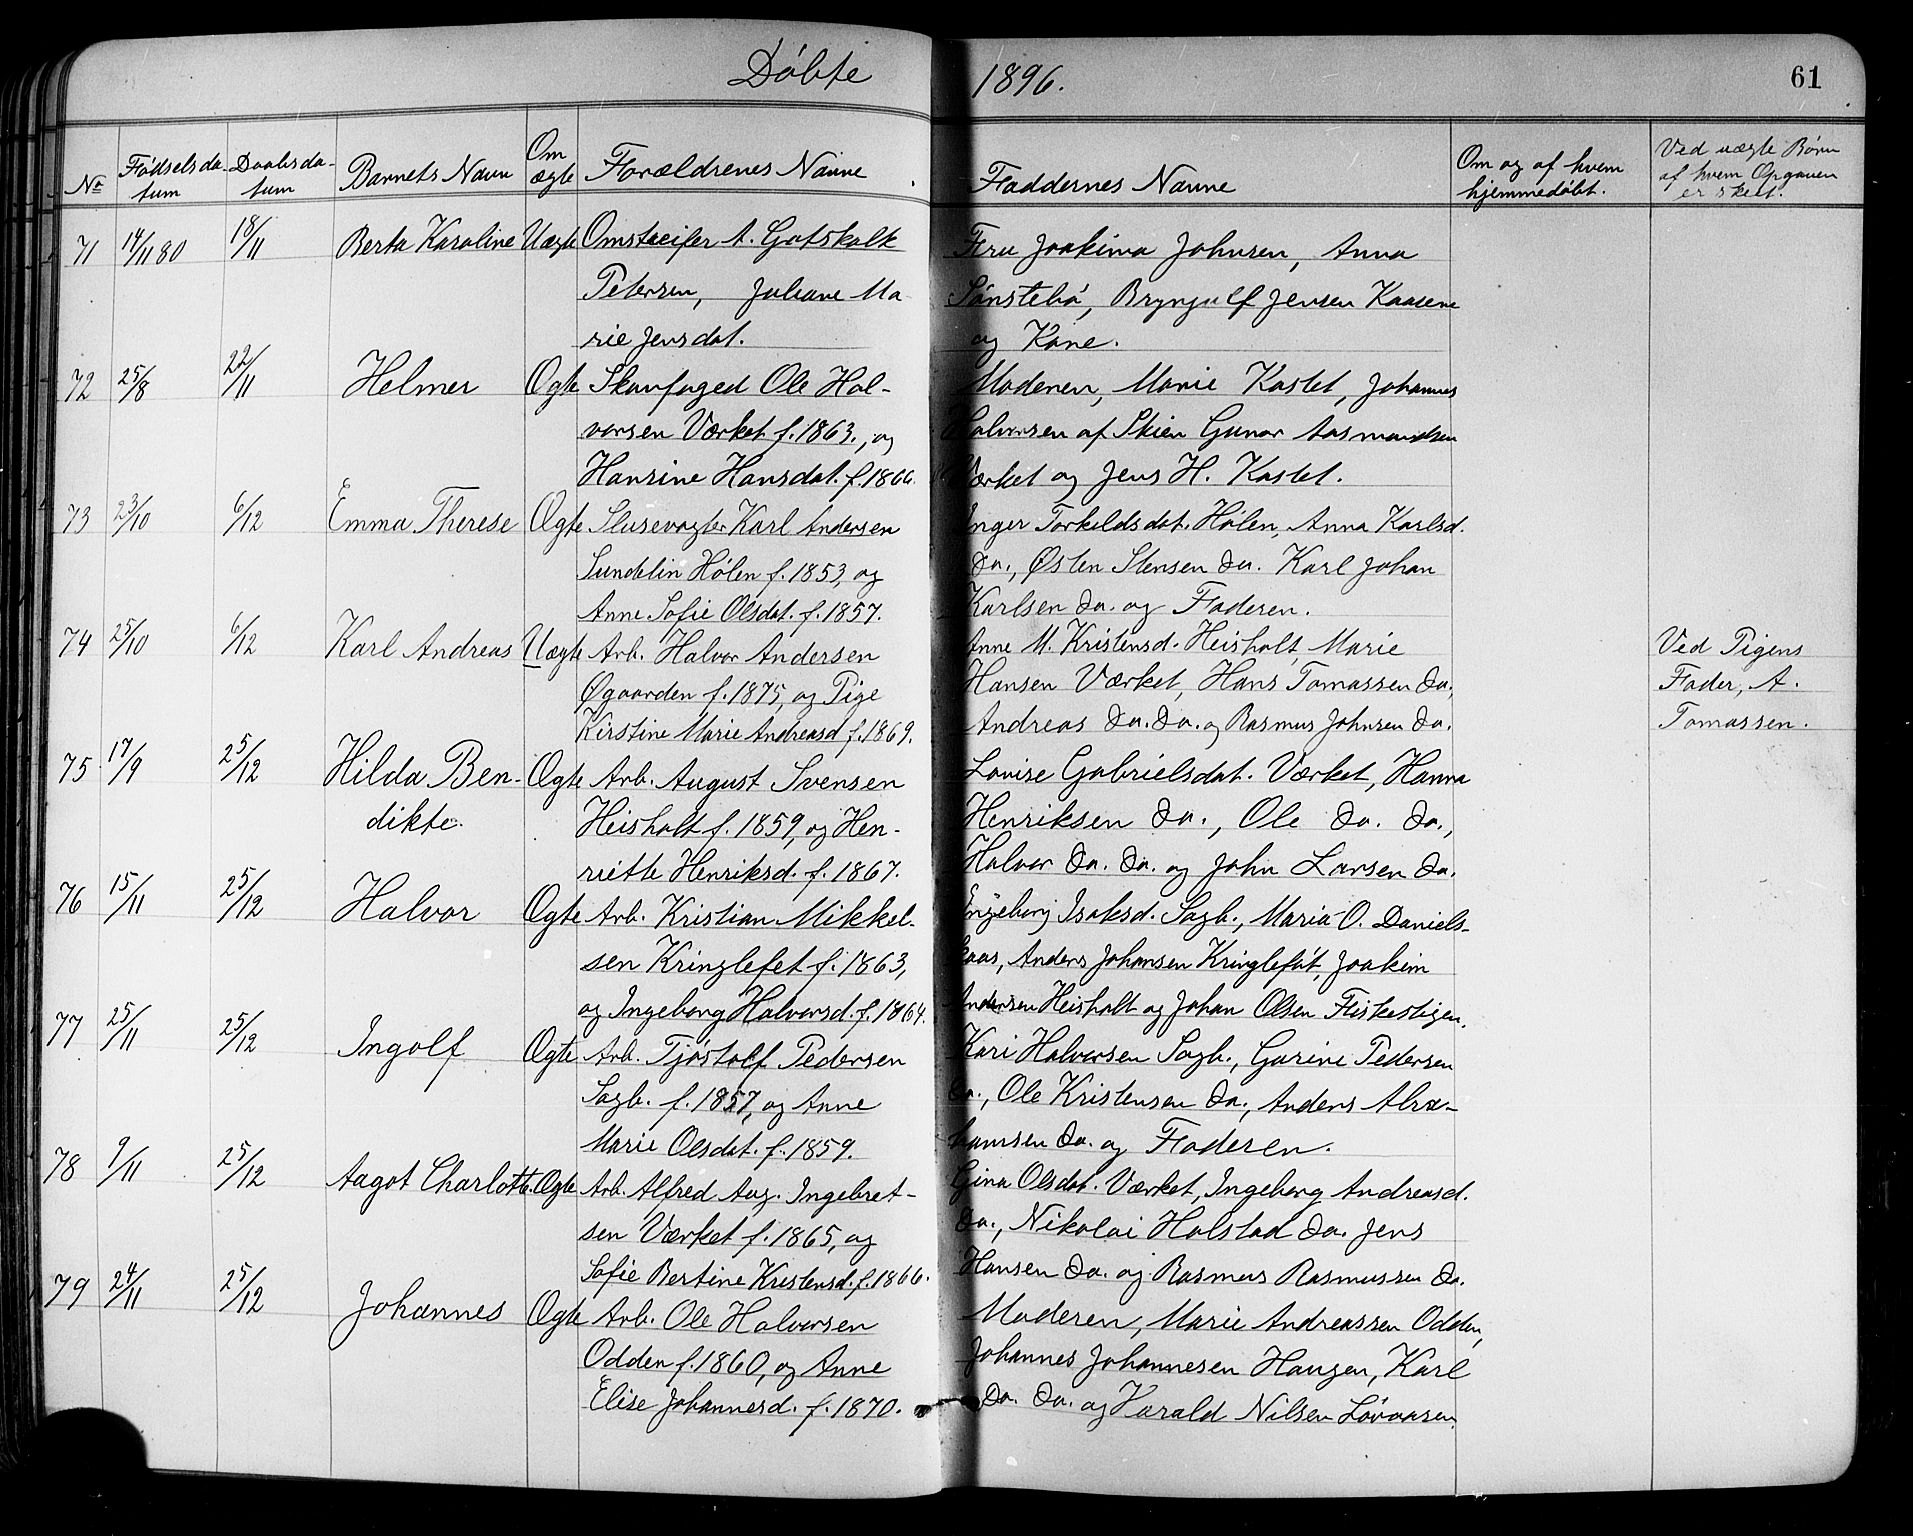 Döbte 1896. 61
No Födselsda- Daabsda- Barnets Navn Om Forældrenes Navne Faddernes Navne Om og af hvem Ved uægte Børn
tum tum ægte hjemmedöbt. af hvem Opgaven
er skeet.
71 14/11 80 18/11 Berta Karoline Uægte Omstreifer A. Gotskalk Fru Joakima Johnsen, Anna
Petersen, Juliane Ma Sönstebö, Brynjulf Jensen Kaasene
rie Jensdat. og Kone.
72 25/8 22/11 Helmer Ægte Skovfoged Ole Hal- Moderen, Marie Kastet, Johannes
vorsen Værket f. 1863., og Halvorsen af Skien Gunar Aasmundsen
Hansine Hansdat. f. 1866. Værket og Jens H. Kastet.
73 23/10 6/12 Emma Therese Ægte Slusevogter Karl Andersen Inger Torkeldsdat. Hølen, Anna Karlsd.
Sundelin Hølen f. 1853, og do., Østen Stensen do. Karl Johan
Anne Sofie Olsdat. f. 1857. Karlsen do. og Faderen.
74 25/10 6/12 Karl Andreas Uægte Arb. Halvor Andersen Anne M. Kristensd. Heisholt, Marie Ved Pigens
Øgaarden f. 1875, og Pige Hansen Værket, Hans Tomassen do, Fader, A.
Kirstine Marie Andreasd f. 1869. Andreas do. do. og Rasmus Johnsen do. Tomassen.
75 17/9 25/12 Hilda Ben- Ægte Arb. August Svensen Lovise Gabrielsdat. Værket, Hanna
dikte. Heisholt f. 1859, og Hen- Henriksen do., Ole do. do.,
riette Henriksd. f. 1867. Halvor do. do. og John Larsen do.
76 15/11 25/12 Halvor Ægte Arb. Kristian Mikkel- Engeborg Isaksd. Sagb., Maria O. Daniels-
sen Kringlefet f. 1863, kaas, Anders Johansen Kringleföt, Joakim
og Ingeborg Halvorsd. f. 1864. Andersen Heisholt og Johan Olsen Fiskestigen.
77 25/11 25/12 Ingolf Ægte Arb. Tjöstolf Pedersen Kari Halvorsen Sagb., Gurine Pedersen
Sagb. f. 1857, og Anne do., Ole Kristensen do., Anders Abra-
Marie Olsdat. f. 1859. hamsen do. og Faderen.
78 9/11 25/12 Aagot Charlotte Ægte Arb. Alfred Aug. Ingebret- Gina Olsdat. Værket, Ingeborg Andreasd.
sen Værket f. 1865, og do., Nikolai Halstad do. Jens
Sofie Bertine Kristensd. f. 1866. Hansen do. og Rasmus Rasmussen do.
79 24/11 25/12 Johannes Ægte Arb. Ole Halvorsen Moderen, Marie Andreassen Odden,
Odden f. 1860, og Anne Johannes Johannesen Haugen, Karl
Elise Johannesd. f. 1870. do. do. og Harald Nilsen Lövaasen.